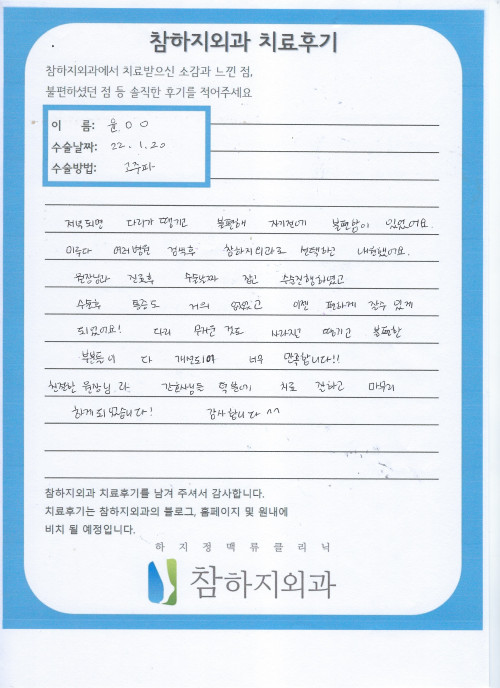 참하지외과 치료후기
참하지외과에서 치료받으신 소감과 느낀 점,
불편하셨던 점 등 솔직한 후기를 적어주세요
이 름: 윤OO
수술날짜: 22. 1. 20
수술방법: 고주파
저녁되면 다리가 땡기고 불편해 자기전에 불편함이 있었어요.
미루다 여러병원 검색후 참하지외과로 선택하고 내원했어요.
원장님과 진료후 수술날짜 잡고 수술진행하였고
수술후 통증도 거의 없었고 이젠 편하게 잘수 있게
되었어요! 다리 무거운 것도 사라지고 땡기고 불편한
부분들이 다 개선되어 너무 만족합니다!!
친절한 원장님과 간호사님들 덕분에 치료 잘하고 마무리
하게 되었습니다! 감사합니다 ^^
참하지외과 치료후기를 남겨 주셔서 감사합니다.
치료후기는 참하지외과의 블로그, 홈페이지 및 원내에
비치 될 예정입니다.
하지정맥류클리닉
참하지외과